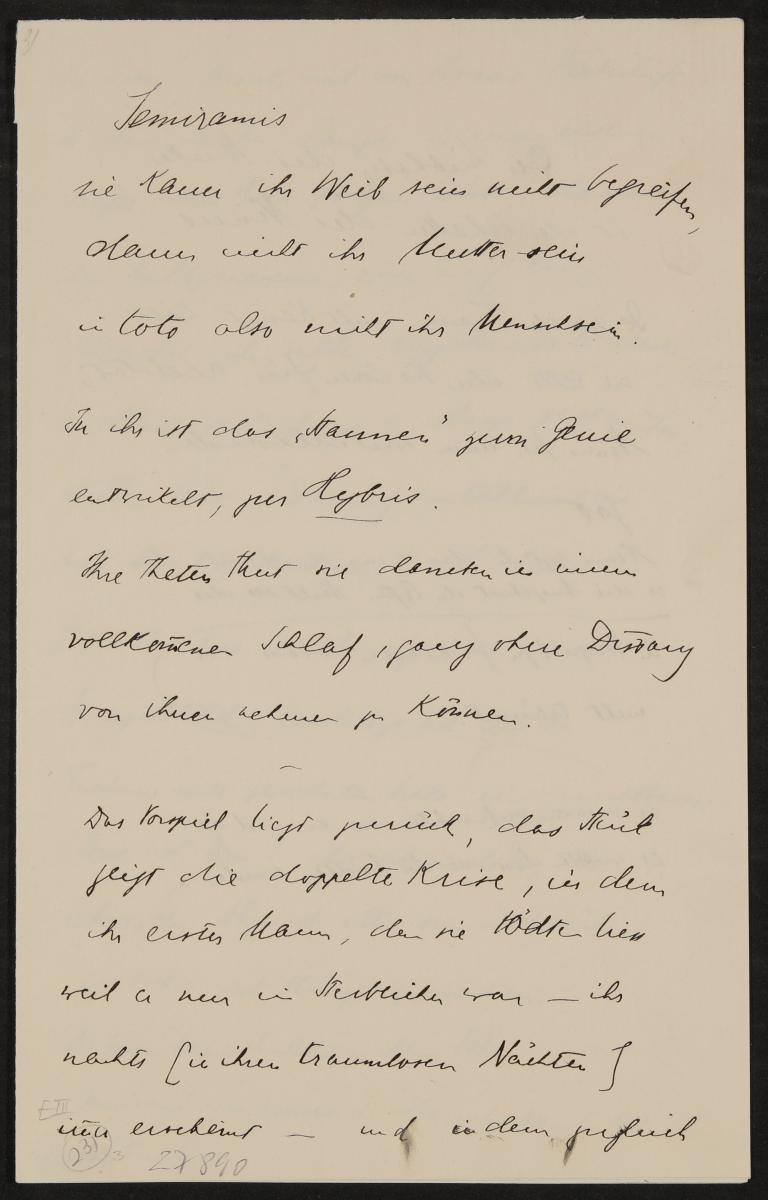 3)
Semiramis
sie kann ihr Weib sein nicht begreifen,
dann nicht ihr Mutter sein
in toto also nicht ihr Menschsein.
In ihr ist das „Staunen" zum Genie
entwickelt, zur Hybris.
Ihre Thaten thut sie daneben in einem
vollkom̄enen Schlaf, ganz ohne Distanz
von ihnen nehmen zu können.
—
Das Vorspiel liegt zurück, das Stück
zeigt die doppelte Krise, in dem
ihr erster Mann, den sie tödten liess
weil er nur ein Sterblicher war — ihr
nachts [in ihren traumlosen Nächten]
im̄er erscheint — und in dem zugleich
E III
231
3
27890